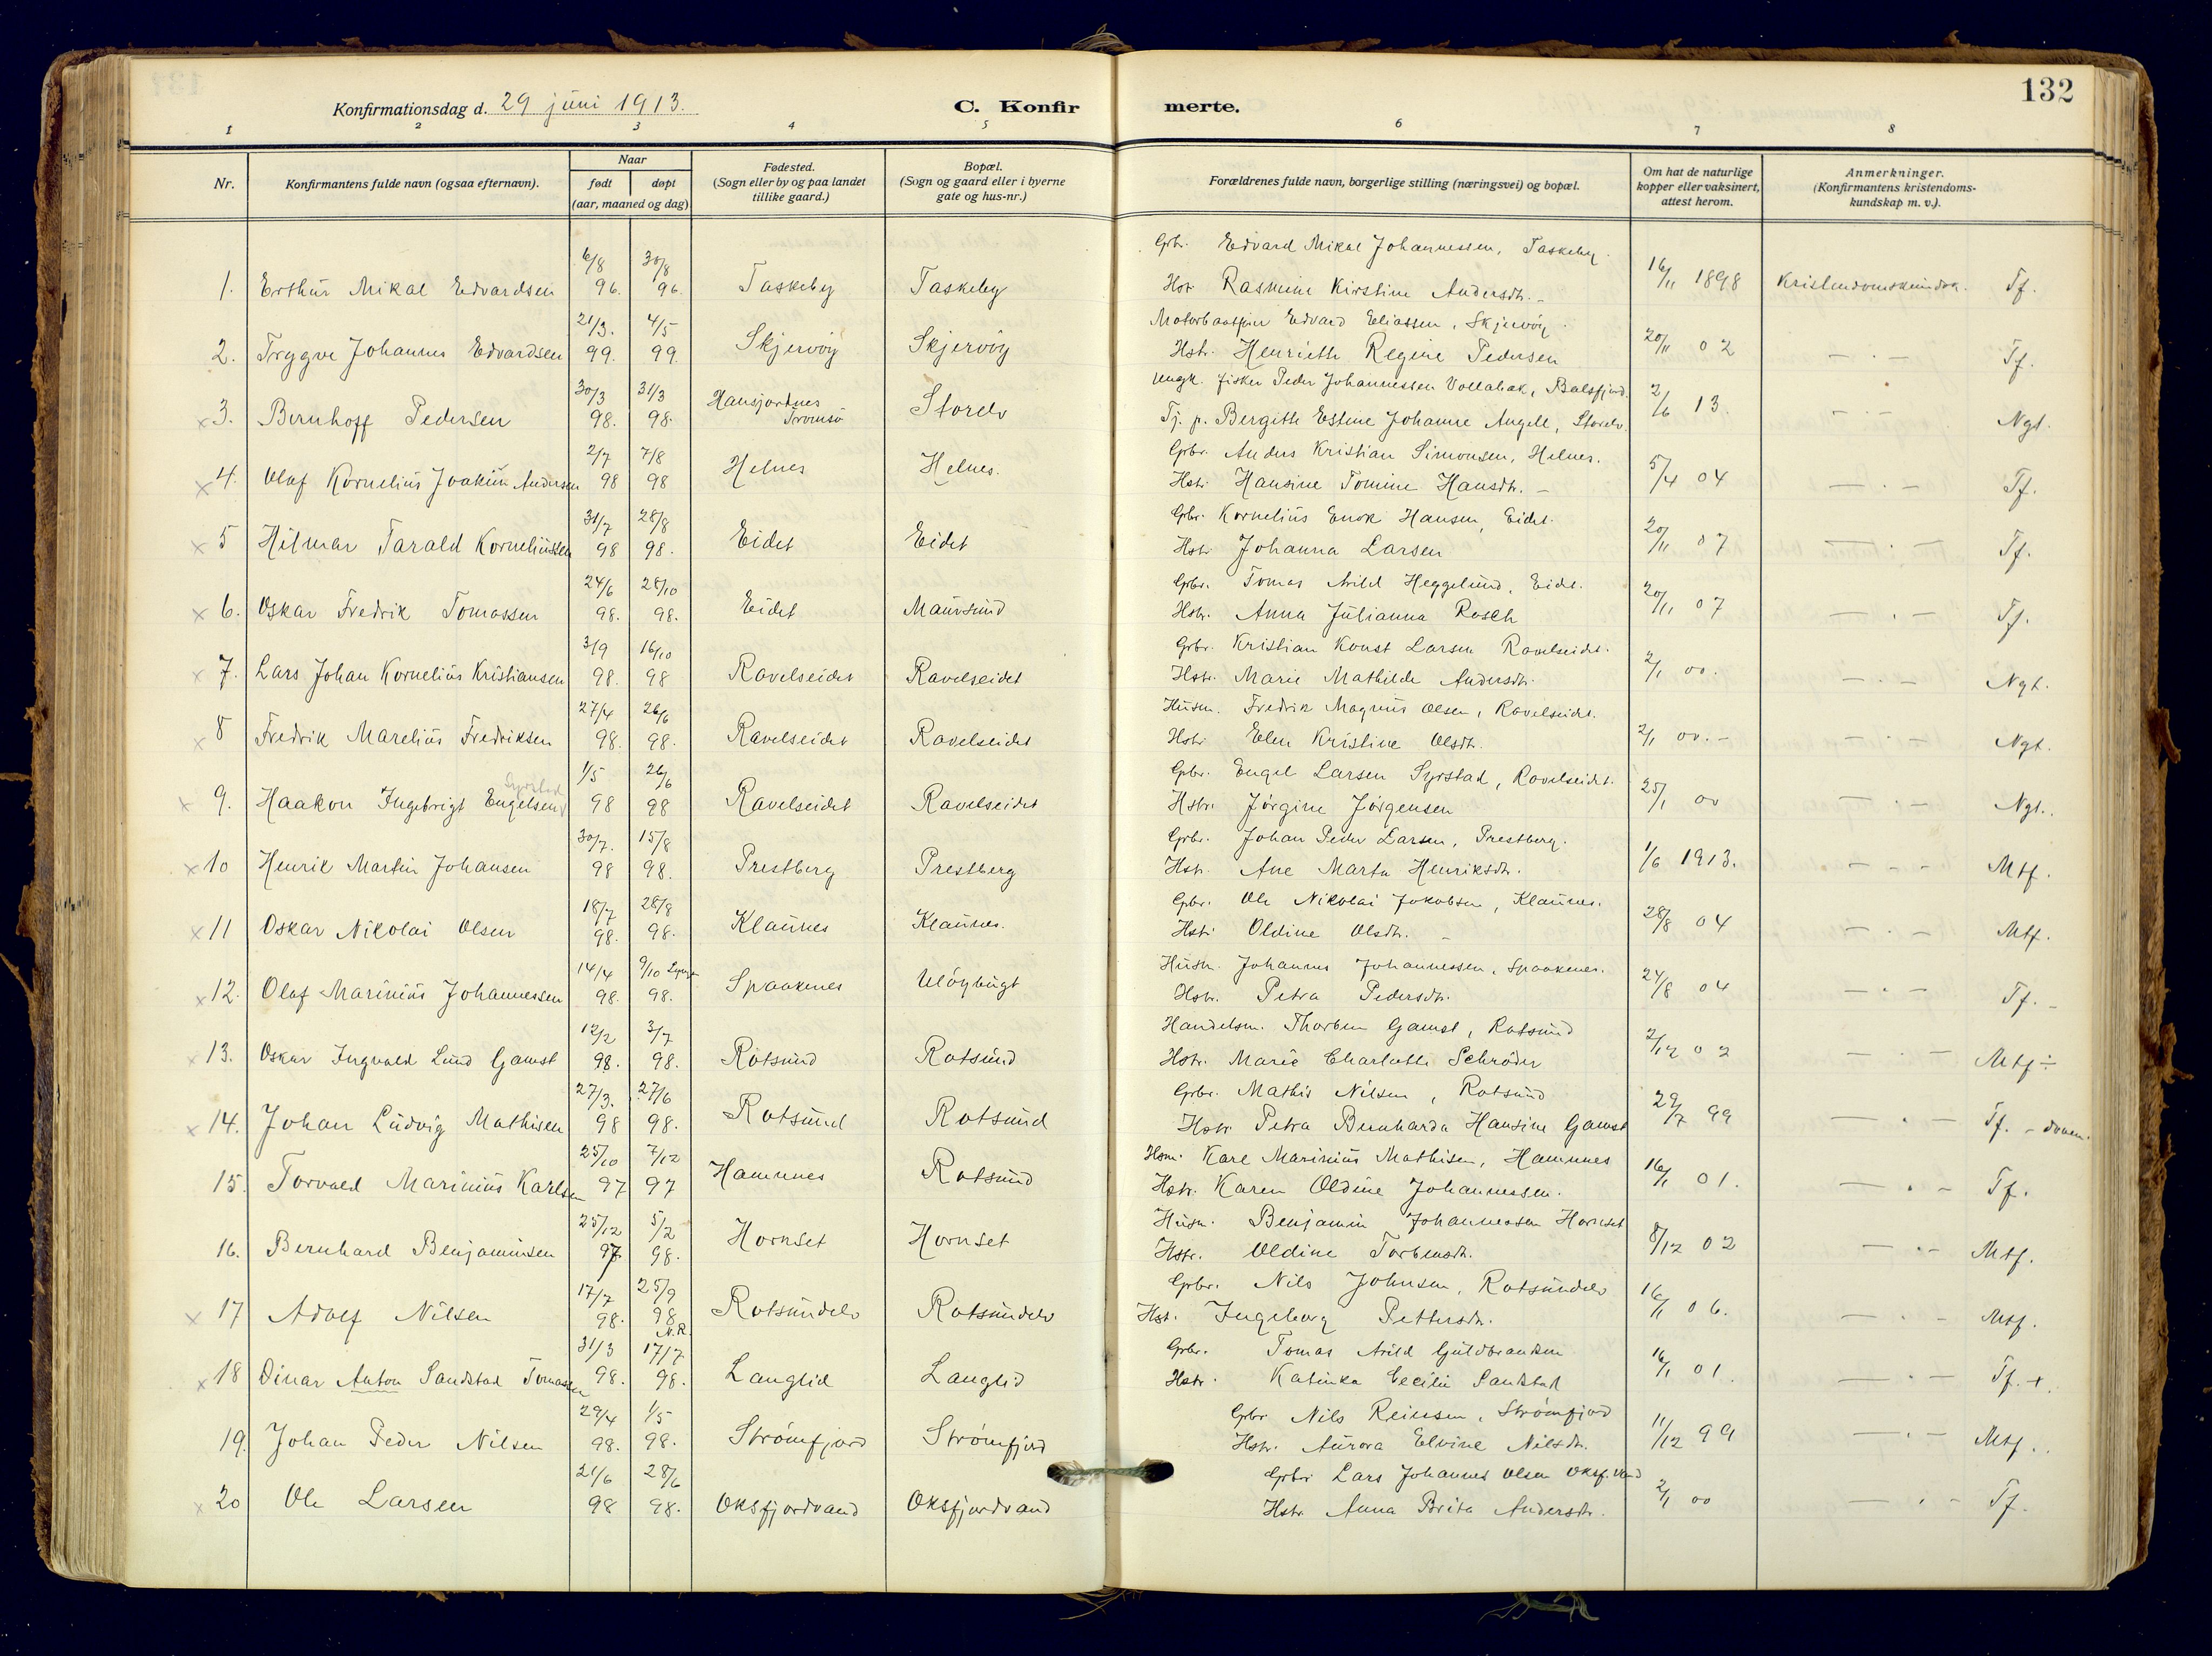 132
Konfirmationsdag d. 29 juni 1913.
C. Konfirmerte.
1 2 3 4 5 6 7 8
Nr.
Konfirmantens fulde navn (ogsaa efternavn).
Naar
født døpt
(aar, maaned og dag)
Fødested.
(Sogn eller by og paa landet
tillike gaard.)
Bopæl.
(Sogn og gaard eller i byerne
gate og hus-nr.)
Forældrenes fulde navn, borgerlige stilling (næringsvei) og bopæl.
Om hat de naturlige
kopper eller vaksinert,
attest herom.
Anmerkninger.
(Konfirmantens kristendoms-
kundskap m. v.).
6/8 30/8 Gbr. Edvard Mikal Johannessen, Taskeby.
1. Erthur Mikal Edvardsen 96. 96. Taskeby Taskeby Hstr. Rasmine Kirstine Andersdtr. - 16/11 1898 Tf.
21/3. 4/5 Edvard Eliassen, Skjervöy.
2. Trygve Johannes Edvardsen 99. 99. Skjervöy Skjervöy Hstr. Henriette Regine Pedersen 20/11 02 - . - Tf.
30/3 31/3 Ungk. fisker Peder Johannessen Vollabak, Balsfjord.
x 3. Bernhoff Pedersen 98. 98. Hansjordnes Tromsö Storelv Tj. p. Bergitte Estine Johanne Angell, Storelv. 2/6 13. - . - Ngt.
2/7 7/8 Gbr. Anders Kristian Simonsen, Helnes.
x 4. Olaf Kornelius Joakim Andersen 98 98 Helnes Helnes. Hstr. Hansine Tomine Hansdtr. - 5/4 04 - . - Tf.
31/7 28/8 Gbr. Kornelius Enok Hansen, Eidet.
x 5 Hilmar Tarald Korneliussen 98 98. Eidet Eidet Hstr. Johanna Larsen 20/11 07 - . - Tf.
24/6 28/10 Gbr. Tomas Arild Heggelund, Eidet.
x 6. Oskar Fredrik Tomassen 98. 98. Eidet Maursund Hstr. Anna Julianna Rosch 20/11 07 - . - Tf.
3/9 16/10 Grbr. Kristian Konst Larsen Ravelseidet.
x 7. Lars Johan Kornelius Kristiansen 98. 98 Ravelseidet Ravelseidet Hstr. Marie Mathilde Andersdtr. 2/1 00. - . - Ngt.
27/4 26/6 Husm. Fredrik Magnus Olsen, Ravelseidet.
x 8 Fredrik Marelius Fredriksen 98. 98. Ravelseidet Ravelseidet Hstr. Elen Kristine Olsdtr. 2/1 00. - - . - Ngt.
Syrstad 1/5 26/6 Gbr. Engel Larsen Syrstad, Ravelseidet.
x 9. Haakon Ingebrigt Engelsen 98 98 Ravelseidet Ravelseidet Hstr. Jörgine Jörgensen 25/1 00 - . - Ngt.
30/7. 15/8 Gbr. Johan Peder Larsen, Prestberg.
x 10 Henrik Martin Johansen 98 98. Prestberg Prestberg Hstr. Ane Marta Henriksdtr. 1/6 1913. - . - Mtf.
18/7 28/8 Gbr. Ole Nikolai Jakobsen, Klaunes.
x 11 Oskar Nikolai Olsen 98. 98. Klaunes Klaunes. Hstr. Oldine Olsdtr. - 28/8 04 - . - Mtf.
14/4 9/10 Husm. Johannes Johannessen, Spaakenes.
x 12. Olaf Marinius Johannessen 98. 98. Spaakenes Ulöybugt Hstr. Petra Pedersdtr. 24/8 04 - . - Tf. -
12/2 3/7 Handelsm. Thorben Gamst, Rotsund
x 13. Oskar Ingvald Lund Gamst 98. 98. Rotsund Rotsund Hstr. Marie Charlotte Schröder 2/12 02 - . - Mtf ÷
27/3. 27/6 Grbr. Mathis Nilsen, Rotsund
x 14. Johan Ludvig Mathisen 98 98. Rotsund Rotsund Hstr. Petra Bernharda Hansine Gamst 29/7 99 - . - Tf. -
25/10 7/12 Hsm. Karl Marinius Mathisen, Hamnnes
15. Torvald Marinius Karlsen 97 97 Hamnnes Rotsund Hstr. Karen Oldine Johannessen. 16/1 01. - . - Tf.
25/12 5/2 Husm. Benjamin Johannessen Hornset
16. Bernhard Benjaminsen 97. 98. Hornset Hornset Hstr. Oldine Torbensdtr. 8/12 02 - . - Mtf.
17/7 25/9 Grbr. Nils Johnsen, Rotsundelv
x 17 Adolf Nilsen 98. 98 Rotsundelv Rotsundelv Hst. Ingeborg Pettersdtr. 16/1 06. - . - Mtf.
N.R.
31/3 17/7 Grbr. Tomas Arild Guldbrandsen
x 18 Einar Anton Sandstad Tomassen 98. 98. Langlid Langlid Hstr. Katinka Cecilie Sandstad 16/1 01. - . - Tf. +.
29/4 1/5 Gbr. Nils Reiersen, Strömfjord
19. Johan Peder Nilsen 98. 98. Strömfjord Strömfjord Hstr. Aurora Elvine Nilsdtr. 11/12 99 - . - Mtf.
21/6 28/6 Grbr. Lars Johannes Olsen Oksf.vand
x 20 Ole Larsen 98 98. Oksfjordvand Oksfjordvand Hstr. Anna Brita Andersdtr. 2/1 00 - . - Tf.